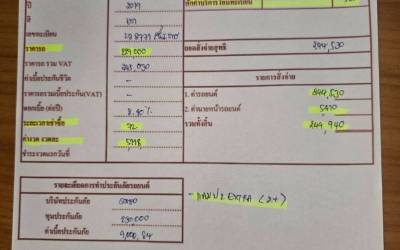 หักค่าบริการโอนทะเบียน
ปี 2019
สี เทา
เลขทะเบียน
ราคารถ 229,000
ยอดสั่งจ่ายสุทธิ 244,530
ราคารถ รวม VAT 245,030
ค่าเบี้ยประกันชีวิต -
รายการสั่งจ่าย
ราคารถรวมเบี้ยประกัน(VAT) -
1. ค่ารถยนต์ 244,530
ดอกเบี้ย (ต่อปี) 8.40%
2. ค่านายหน้ารถยนต์ 5410
ระยะเวลาเช่าซื้อ 72
รวมทั้งสิ้น 249,940
ค่างวด งวดละ 5,118
ชำระงวดแรกวันที่
รายละเอียดการทำประกันภัยรถยนต์
บริษัทประกันภัย
ทุนประกันภัย 230,000
ค่าเบี้ยประกันภัย 9,000.84
EXTRA (2+)